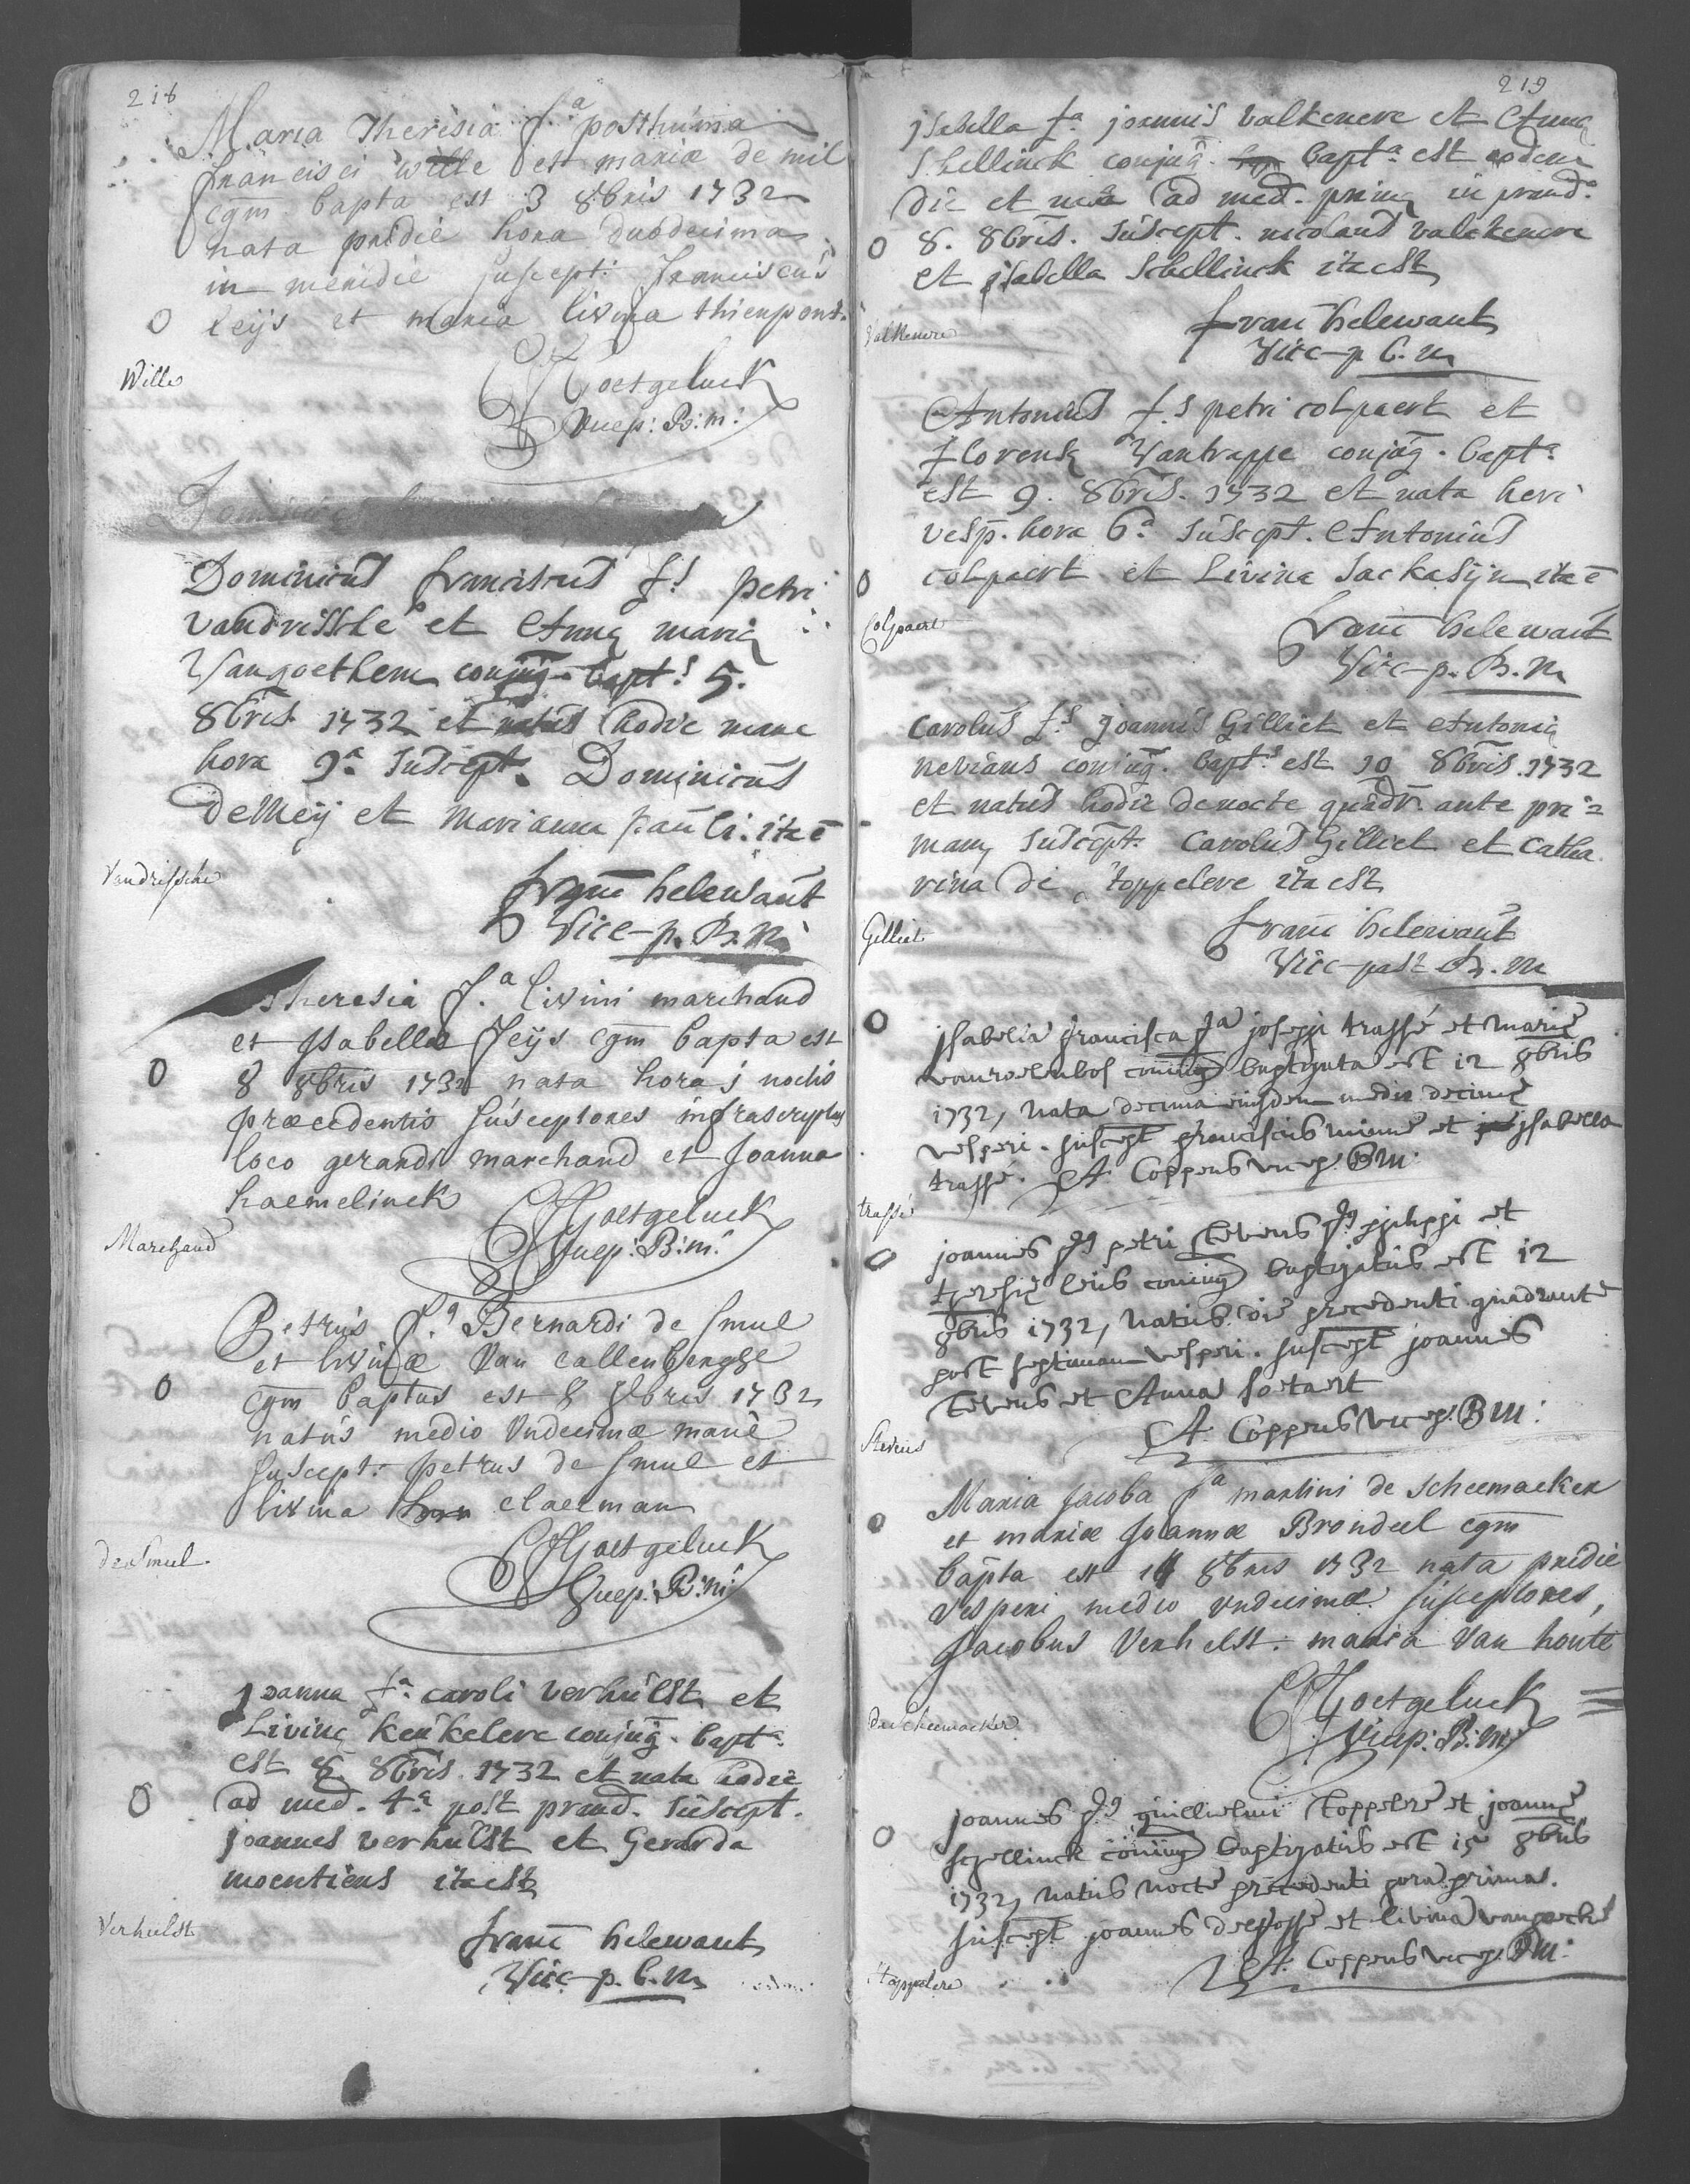 218
Maria Theresia fa posthuma
francisci wille et mariæ de mil
cgm bapta est 3 8bris 1732
nata pridie hora duodecima
in meridie suscept: franciscus
leijs et maria livina thienpont.
Wille
Goetgeluck
vicep: B: m:
Dominicus franciscus fs petri
vandrissche et Annę marię
Vangoethem conjug. bapts 5.
8bris 1732 et natus hodie mane
hora 9a suscept. Dominicus
demeij et marianna pauli. ita ē
Vandrissche
franc helewaut
Vice-p. B. M
Theresia fa livini marchand
et Isabellæ feijs cgm bapta est
8 8bris 1732 nata hora j noctis
præcedentis susceptores infrascriptus
loco gerardi marchand et Joanna
haemelinck
Marchand
Goetgeluck
vicep: B: m:
Petrus fs Bernardi de smul
et livinæ Van Callenberghe
cgm baptus est 8 8bris 1732
natus medio Undecimæ mane
suscept: petrus de smul et
livina claerman
de Smul
Goetgeluck
vicep: B: m:
Joanna fa caroli verhulst et
Livinę keukelere conjug. bapta
est 8. 8bris 1732 et nata hodie
ad med. 4a post prand. suscept.
joannes verhulst et Gerarda
moentiens ita est
Verhulst
franc helewaut
Vice-p. b. M
219
jsabella fa joannis valkenere et Annę
schellinck conjug. bapta est eodem
die et nata ad med. primę in prand.
8. 8bris. suscept. nicolaus valckenere
et jsabella schellinck ita est
Valkenere
franc helewaut
Vice-p b. m
Antonius fs petri colpaert et
florentię Vantrappe conjug. bapta
est 9. 8bris. 1732 et nata heri
vesp. hora 6a suscept. Antonius
colpaert et Livina Sackasijn ita ē
Colpaert
franc helewaut
Vice-p. B. M
Carolus fs joannis Gilliet et Antonię
nevians conjug. bapts est 10 8bris. 1732
et natus hodie de nocte quadr. ante pri=
mam, suscept. Carolus Gilliet et Catha
rina de stoppelere ita est
Gilliet
franc helewaut
Vice-past B. M
jsabella francisca fa josephi trassé et marię
vanroelenbos coniug baptizata est 12 8bris
1732, nata decima eiusdem media decimę
vesperi. suscept franciscus minne et jsabella
trassé. A. Coppens vicep. BM:
trassé
joannes fs petri stevens fs philippi et
theresię leus coniug baptizatus est 12
8bris 1732, natus die precedenti quadrante
post septimam vesperi. suscept joannes
stevens et Anna soetaert
A. Coppens vicep. BM:
Stevens
Maria Jacoba fa martini de scheemaeker
et mariæ Joannæ Brondeel cgm
bapta est 14 8bris 1732 nata pridie
vesperi medio undecimæ susceptores,
Jacobus Verhelst. maria Van houte
de scheemaeker
Goetgeluck
vicep: B: m:
joannes fs guillielmi stoppelere et joannę
schellinck coniug baptizatus est 15 8bris
1732, natus nocte precedenti hora prima.
suscept joannes delfosse et livina vanhecke
A. Coppens vicep. BM:
Stoppelere